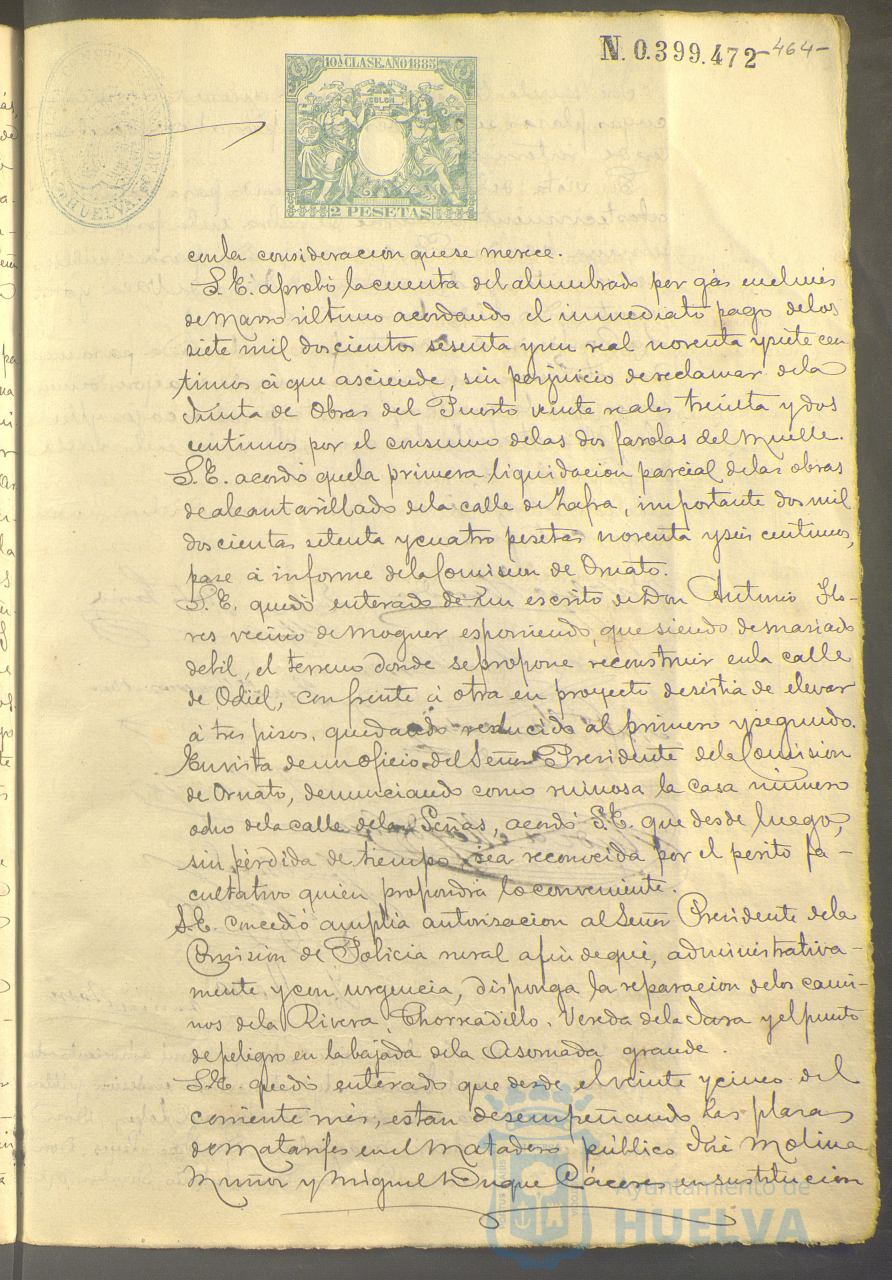 N.0.399.472 -464-
10ª CLASE. AÑO 1885
COLON
2 PESETAS
HUELVA
con la consideracion que se merece.
S.E. aprobó la cuenta del alumbrado por gás en el més
de Marzo último acordando el inmediato pago de los
siete mil doscientos sesenta y un real noventa y siete cen
timos á que asciende, sin perjuicio de reclamar de la
Junta de Obras del Puerto veinte reales treinta y dos
centimos por el consumo de las dos farolas del Muelle.
S.E. acordó que la primera liquidacion parcial de las obras
de alcantarillado de la calle de Zafra, importante dos mil
doscientas setenta y cuatro pesetas noventa y seis centimos,
pase á informe de la Comision de Ornato.
S.E. quedó enterado de un escrito de Don Antonio Flo-
res vecino de Moguer esponiendo, que siendo demasiado
debil, el terreno donde se propone reconstruir en la calle
de Odiel, con frente á otra en proyecto desistia de elevar
á tres pisos, quedando reducido al primero y segundo.
En vista de un oficio del Señor Presidente de la Comision
de Ornato, denunciando como ruinosa la casa número
ocho de la calle de las Peñas, acordó S.E. que desde luego,
sin pérdida de tiempo sea reconocida por el perito fa-
cultativo quien propondrá lo conveniente.
S.E. concedió amplia autorisacion al Señor Presidente de la
Comision de Policia rural a fin de que, administrativa-
mente y con urgencia, disponga la reparacion de los cami-
nos de la Rivera, Chorreadillo, Vereda de la Jara y el punto
de peligro en la bajada de la Asomada grande.
S.E. quedó enterado que desde el veinte y cinco del
corriente més, estan desempeñando las plazas
de Matarifes en el Matadero público José Molina
Muñoz y Miguel Duque Cáceres en sustitucion
Ayuntamiento de
HUELVA